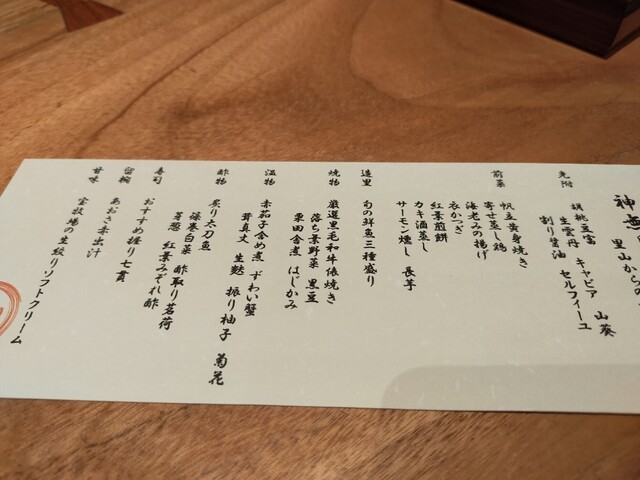 神無
里山からの
先附
胡桃豆富 キャビア 山葵
生雲丹 セルフィーユ
割り醤油
前菜
帆立黄身焼き
寄せ蒸し鶏
海老みの揚げ
衣かつぎ
紅葉煎餅
カキ酒蒸し
サーモン燻し 長芋
造里
旬の鮮魚三種盛り
焼物
厳選黒毛和牛俵焼き
落ち葉野菜 黒豆
栗田舎煮 はじかみ
温物
赤茄子含め煮 ずわい蟹
茸真丈 生麩 振り柚子 菊花
酢物
炙り太刀魚
篠巻白菜 酢取り茗荷
芽葱 紅葉みぞれ酢
寿司
おすすめ握り七貫
留椀
あおさ赤出汁
甘味
宝牧場の生絞りソフトクリーム